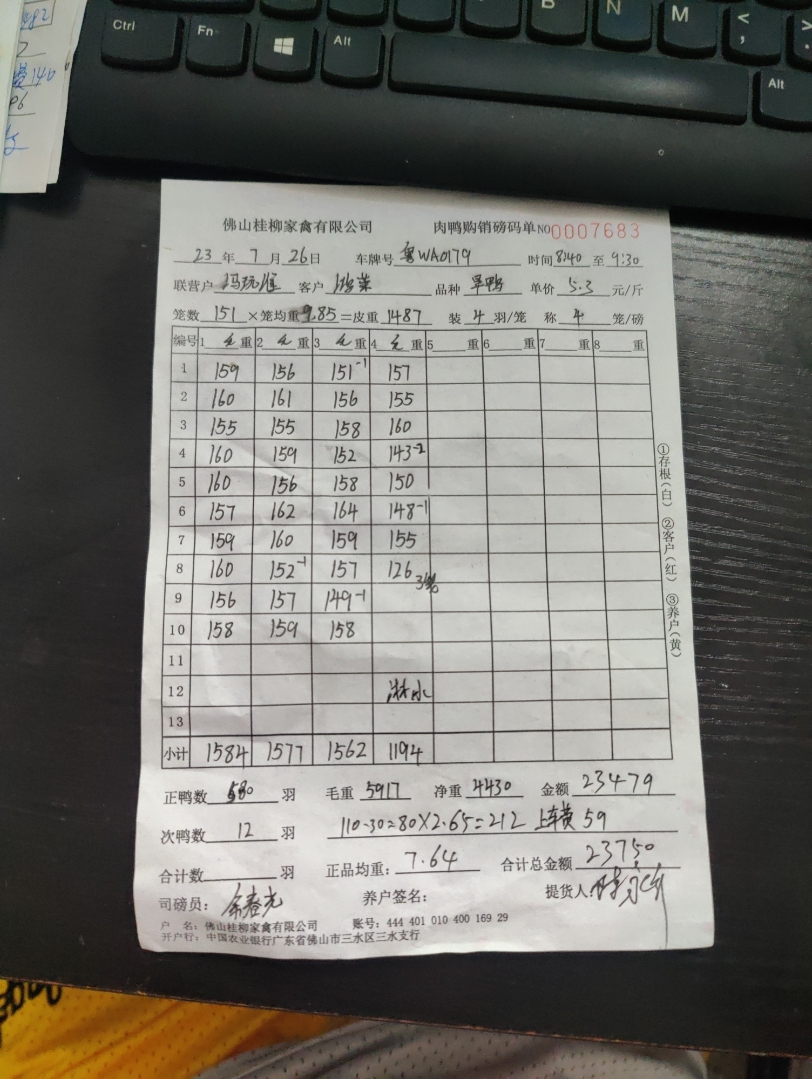 Ctrl Fn Alt B N M < , Alt
佛山桂柳家禽有限公司 肉鸭购销磅码单 NO 0007683
23 年 7 月 26 日 车牌号 粤WA0179 时间 8:40 至 9:30
联营户 客户 品种 单鸭 单价 5.3 元/斤
笼数 151 ×笼均重 9.85 =皮重 1487 装 4 羽/笼 称 4 笼/磅
编号 1 毛 重 2 毛 重 3 毛 重 4 毛 重 5 重 6 重 7 重 8 重
1 159 156 151-1 157
2 160 161 156 155
3 155 155 158 160
4 160 159 152 143-2
5 160 156 158 150
6 157 162 164 148-1
7 159 160 159 155
8 160 152-1 157 126 3笼
9 156 157 149-1
10 158 159 158
11
12 淋水
13
小计 1584 1577 1562 1194
①存根(白) ②客户(红) ③养户(黄)
正鸭数 580 羽 毛重 5917 净重 4430 金额 23479
次鸭数 12 羽 110-30=80×2.65=212 上车费 59
合计数 羽 正品均重: 7.64 合计总金额 23750
司磅员: 余春光 养户签名: 提货人
户 名: 佛山桂柳家禽有限公司 账号: 444 401 010 400 169 29
开户行: 中国农业银行广东省佛山市三水区三水支行